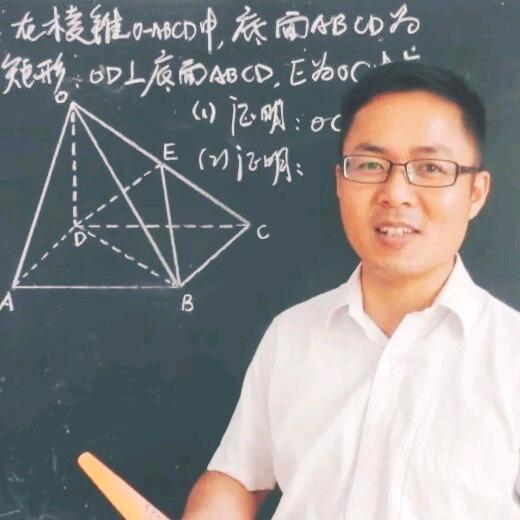 在棱錐O-ABCD中,底面ABCD为
矩形.OD⊥底面ABCD,E为OC
(1) 证明:OC
(2) 证明:
O
E
D
C
A
B